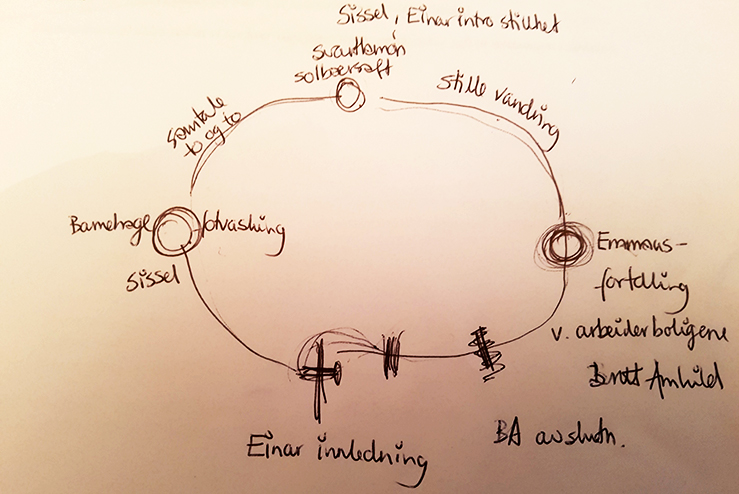 Sissel, Einar intro stillhet
svartlamon
solbærsaft
stille vandring
samtale
to og to
Barnehage fotvasking
Sissel
Emmaus-
fortelling
v. arbeiderboligene
Arnhild
BA avslutn.
Einar innledning